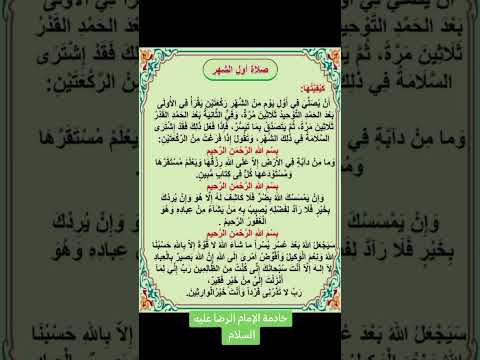 صلاة أول الشهر
كَيْفِيَّتُهَا:
أَنْ يُصَلِّيَ فِي أَوَّلِ يَوْمٍ مِنَ الشَّهْرِ رَكْعَتَيْنِ يَقْرَأُ فِي الأُولَى
بَعْدَ الحَمْدِ التَّوْحِيدَ ثَلاثِينَ مَرَّةً، وَفِي الثَّانِيَةِ بَعْدَ الحَمْدِ القَدْرَ
ثَلاثِينَ مَرَّةً، ثُمَّ يَتَصَدَّقَ بِمَا تَيَسَّرَ، فَإِذَا فَعَلَ ذَلِكَ فَقَدْ اِشْتَرَى
السَّلامَةَ فِي ذَلِكَ الشَّهْرِ، وَتَقُولُ إِذَا فَرَغْتَ مِنَ الرَّكْعَتَيْنِ:
بِسْمِ اللهِ الرَّحْمَنِ الرَّحِيمِ
وَمَا مِنْ دَابَّةٍ فِي الأَرْضِ إِلاَّ عَلَى اللهِ رِزْقُهَا وَيَعْلَمُ مُسْتَقَرَّهَا
وَمُسْتَوْدَعَهَا كُلٌّ فِي كِتَابٍ مُبِينٍ.
بِسْمِ اللهِ الرَّحْمَنِ الرَّحِيمِ
وَإِنْ يَمْسَسْكَ اللهُ بِضُرٍّ فَلَا كَاشِفَ لَهُ إِلَّا هُوَ وَإِنْ يُرِدْكَ
بِخَيْرٍ فَلَا رَادَّ لِفَضْلِهِ يُصِيبُ بِهِ مَنْ يَشَاءُ مِنْ عِبَادِهِ وَهُوَ
الْغَفُورُ الرَّحِيمُ
بِسْمِ اللهِ الرَّحْمَنِ الرَّحِيمِ
سَيَجْعَلُ اللهُ بَعْدَ عُسْرٍ يُسْراً مَا شَاءَ اللهُ لا قُوَّةَ إِلاَّ بِاللهِ حَسْبُنَا
اللهُ وَنِعْمَ الْوَكِيلُ وَأُفَوِّضُ أَمْرِي إِلَى اللهِ إِنَّ اللهَ بَصِيرٌ بِالْعِبَادِ
لا إِلَهَ إِلاَّ أَنْتَ سُبْحَانَكَ إِنِّي كُنْتُ مِنَ الظَّالِمِينَ رَبِّ إِنِّي لِمَا
أَنْزَلْتَ إِلَيَّ مِنْ خَيْرٍ فَقِيرٌ،
رَبِّ لا تَذَرْنِي فَرْداً وَأَنْتَ خَيْرُ الْوَارِثِينَ.
خادمة الإمام الرضا عليه
السلام